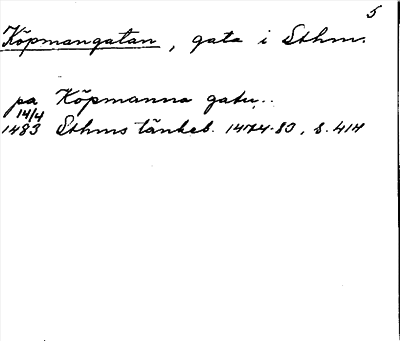 5
Köpmangatan, gata i Sthm.
pa Köpmanna gatu..
14/4
1483 Sthms tänkeb. 1474-83, s. 414